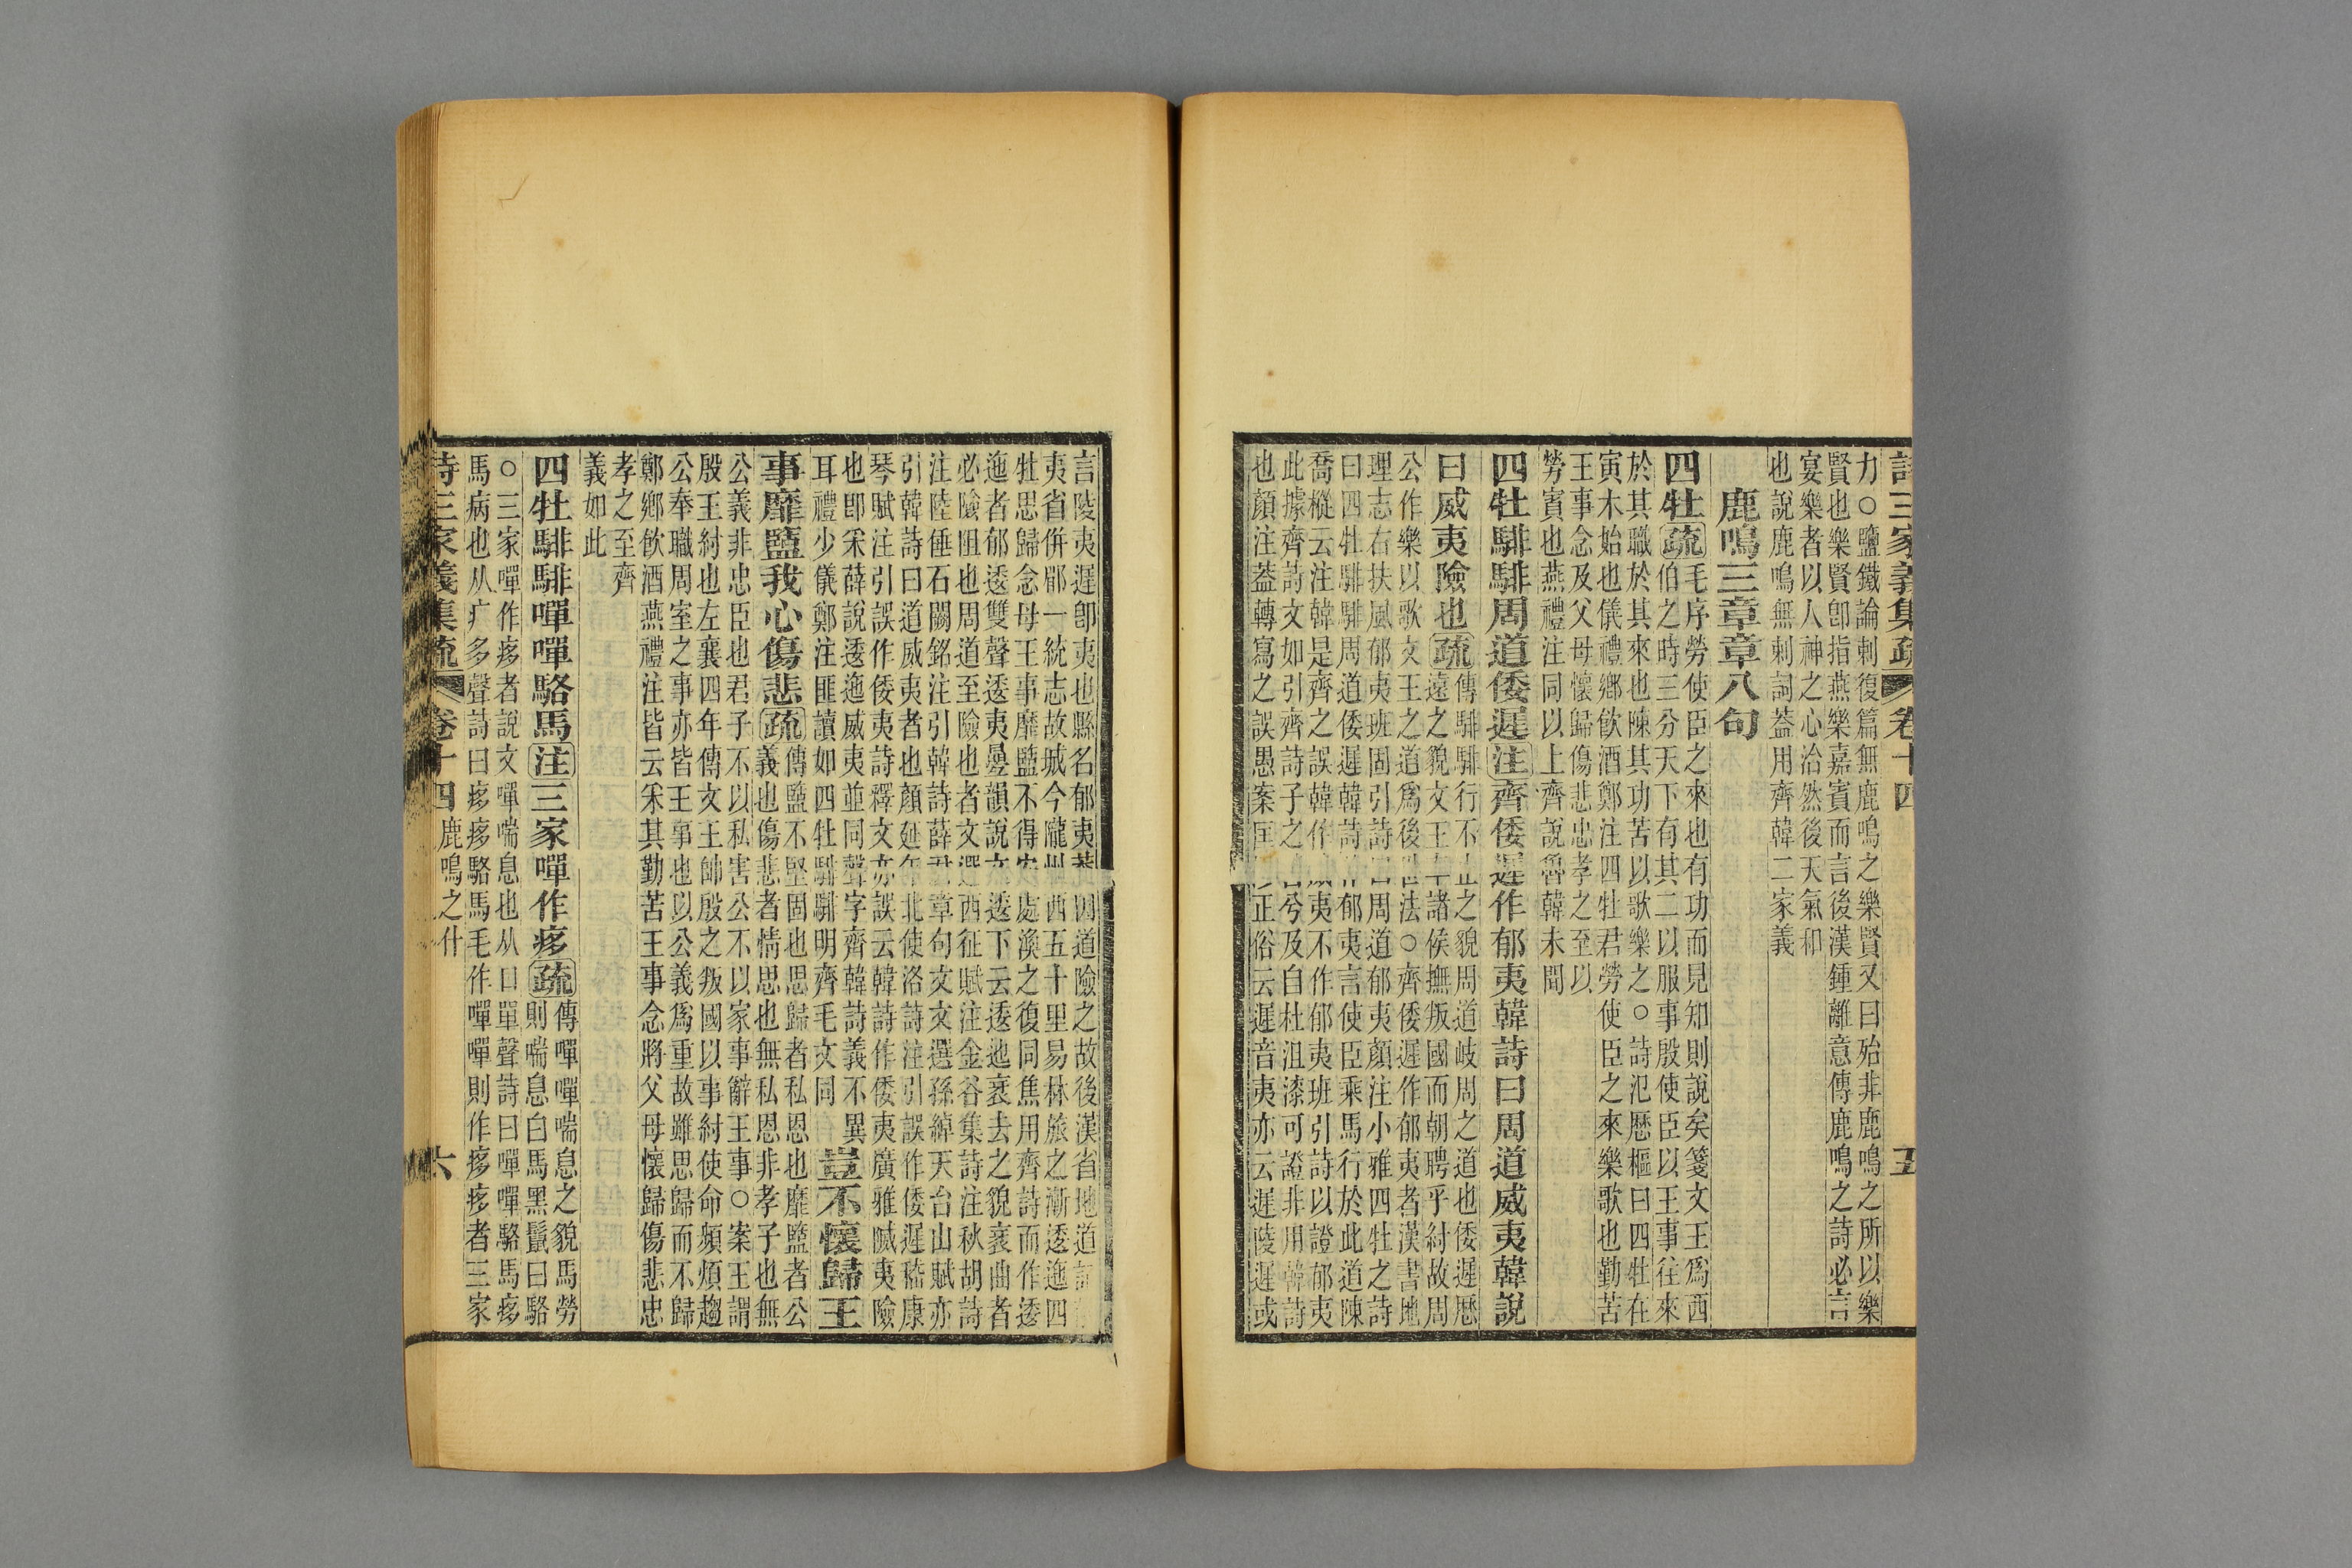 詩三家義集疏 卷十四 五
力○鹽鐵論刺復篇無鹿鳴之樂賢又曰殆非鹿鳴之所以樂
賢也樂賢卽指燕樂嘉賓而言後漢鍾離意傳鹿鳴之詩必言
宴樂者以人神之心洽然後天氣和
也說鹿鳴無刺詞蓋用齊韓二家義
鹿鳴三章章八句
四牡疏毛序勞使臣之來也有功而見知則說矣箋文王爲西
伯之時三分天下有其二以服事殷使臣以王事往來
於其職於其來也陳其功苦以歌樂之○詩氾歷樞曰四牡在
寅木始也儀禮鄉飮酒鄭注四牡君勞使臣之來樂歌也勤苦
王事念及父母懷歸傷悲忠孝之至以
勞賓也燕禮注同以上齊說魯韓未聞
四牡騑騑周道倭遲注齊倭遲作郁夷韓詩曰周道威夷韓說
曰威夷險也疏傳騑騑行不止之貌周道岐周之道也倭遲歷
遠之貌文王諸侯撫叛國而朝聘乎紂故周
公作樂以歌文王之道爲後世法○齊倭遲作郁夷者漢書地
理志右扶風郁夷班固引詩曰周道郁夷顏注小雅四牡之詩
曰四牡騑騑周道倭遲韓詩作郁夷言使臣乘馬行於此道陳
喬樅云注韓是齊之誤韓作夷不作郁夷班引詩以證郁夷
此據齊詩文如引齊詩子之兮及自杜沮漆可證非用韓詩
也顏注蓋轉寫之誤愚案匡正俗云遲音夷亦云遲陵遲或
言陵夷遲卽夷也縣名郁夷道險之故後漢省地道記
夷省併郿一統志故城今隴州西五十里易林旅之漸逶迤四
牡思歸念母王事靡盬不得安處渙之復同焦用齊詩而作逶
迤者郁逶雙聲逶夷疊韻說文逶下云逶迤衺去之貌衺曲者
必險阻也周道至險也者文選西征賦注金谷集詩注秋胡詩
注陸倕石闕銘注引韓詩薛君章句文文選孫綽天台山賦亦
引韓詩曰道威夷者也顏延年北使洛詩注引誤作倭遲嵇康
琴賦注引誤作倭夷詩釋文亦誤云韓詩作倭夷廣雅隇夷險
也卽采薛說逶迤威夷並同聲字齊韓詩義不異
耳禮少儀鄭注匪讀如四牡騑騑明齊毛文同 豈不懷歸王
事靡盬我心傷悲疏傳盬不堅固也思歸者私恩也靡盬者公
義也傷悲者情思也無私恩非孝子也無
公義非忠臣也君子不以私害公不以家事辭王事○案王謂
殷王紂也左襄四年傳文王帥殷之叛國以事紂使命頻煩趨
公奉職周室之事亦皆王事也以公義爲重故雖思歸而不歸
鄭鄉飮酒燕禮注皆云采其勤苦王事念將父母懷歸傷悲忠
孝之至齊
義如此
四牡騑騑嘽嘽駱馬注三家嘽作痑疏傳嘽嘽喘息之貌馬勞
則喘息白馬黑鬣曰駱
○三家嘽作痑者說文嘽喘息也从口單聲詩曰嘽嘽駱馬痑
馬病也从疒多聲詩曰痑痑駱馬毛作嘽嘽則作痑痑者三家
詩三家義集疏 卷十四 鹿鳴之什 六